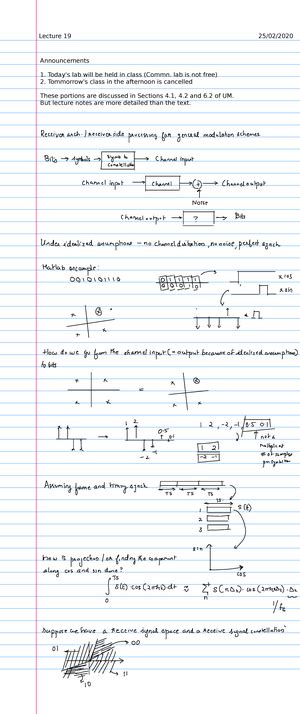 Lecture 19 25/02/2020
Announcements
1. Today's lab will be held in class (Commn. lab is not free)
2. Tommorrow's class in the afternoon is cancelled
These portions are discussed in Sections 4.1, 4.2 and 6.2 of UM.
But lecture notes are more detailed than the text.
Receiver arch./receiver side processing for general modulation schemes
Bits → symbols → symbols to constellation → Channel input
Channel input → Channel → + → Channel output
Noise
Channel output → ? → Bits
Under idealized assumptions – no channel distortion, no noise, perfect synch
Matlab example:
0010101110
x cos
x sin
How do we go from the channel input (= output because of idealized assumptions)
to bits
=
1 2 , -2 , -1 , 0.5 0.1
1 2
0.5
0.1
-1
-2
1 2
-2 -1
not a
multiple of
# of samples
per symbol
Assuming frame and timing synch
TS TS TS
TS
1
2
3
S(t)
sin
cos
How is projection/or finding the component
along cos and sin done?
∫ S(t) cos(2πf₀t) dt ≈ Σ S(nΔs) cos(2πf₀nΔs) Δs
TS
0
n
1/fs
Suppose we have a receive signal space and a receive signal constellation
01
00
10
11